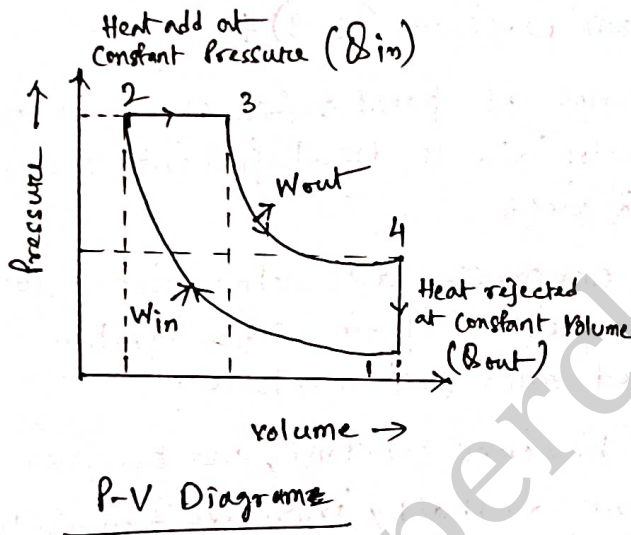 Heat add at
Constant Pressure (Qin)
2
3
Pressure →
Wout
4
Win
Heat rejected
at Constant Volume
(Qout)
1
volume →
P-V Diagram